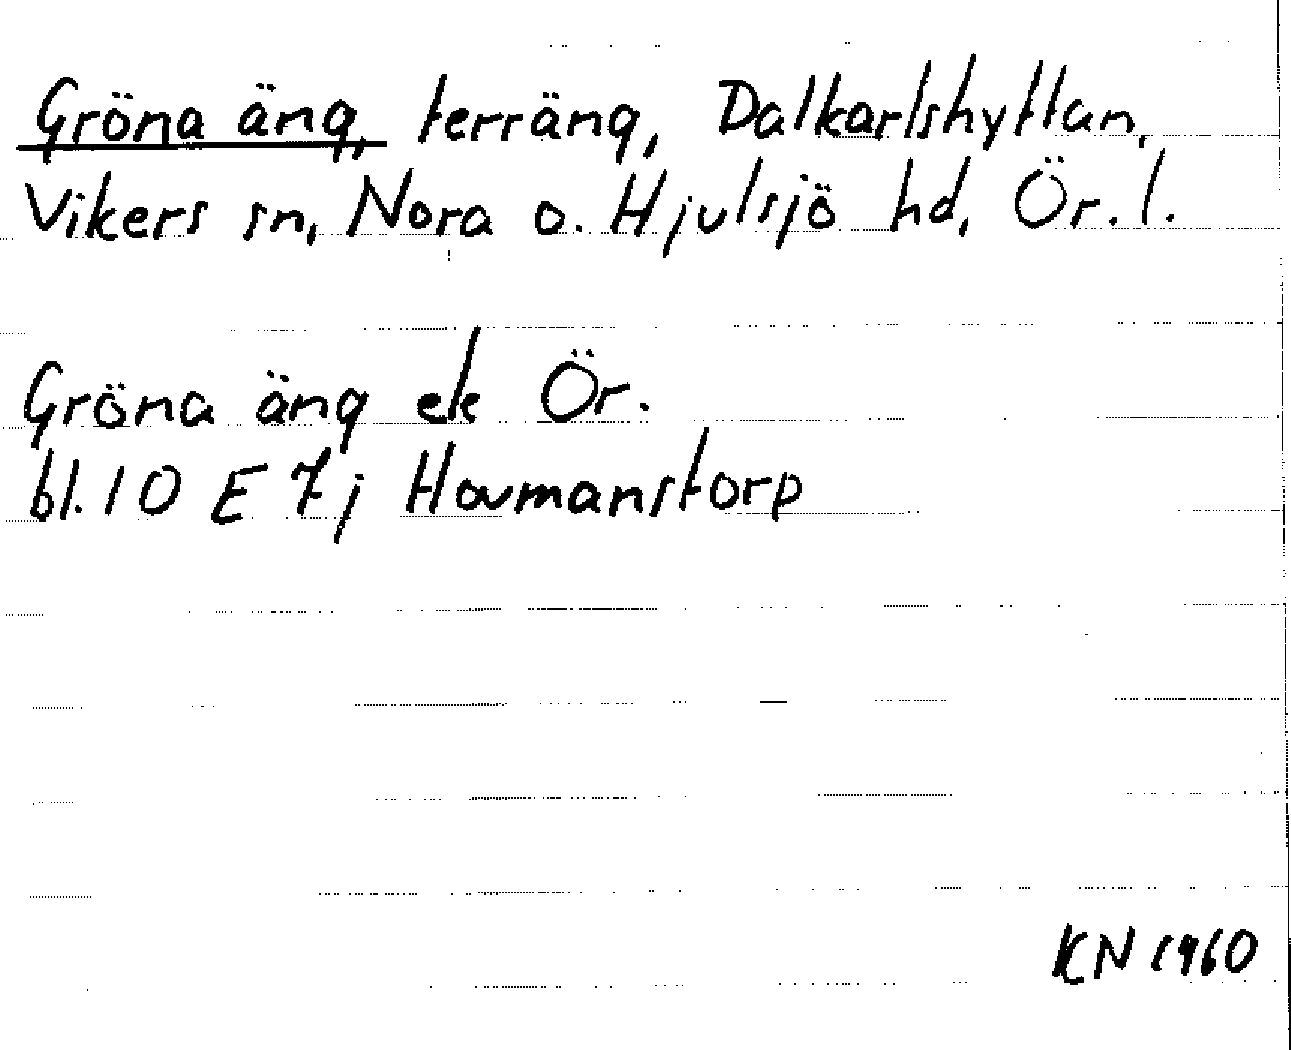 Gröna äng, terräng, Dalkarlshyttan,
Vikers sn, Nora o. Hjulsjö hd, Ör. l.
Gröna äng ek Ör.
bl. 10 E 7j Hovmanstorp
KN 1960